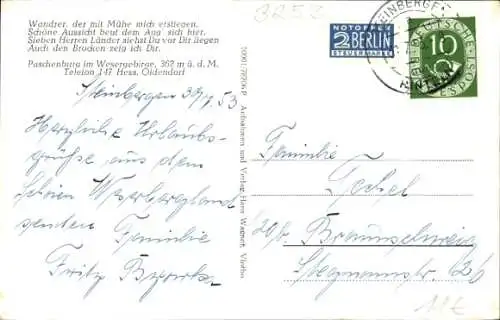 Wandrer, der mit Mühe mich erstiegen,
Schöne Aussicht beut dem Aug' sich hier.
Sieben Herren Länder siehst Du vor Dir liegen
Auch den Brocken zeig ich Dir.
Paschenburg im Wesergebirge, 362 m ü. d. M.
Telefon 147 Hess. Oldendorf
Steinbergen 30/ 53
Herzliche Urlaubs-
grüße aus dem
schönen Weserbergland
senden
Familie
Fritz
Aufnahmen und Verlag Hans Wagner, Vlotho
3253
NOTOPFER
2 BERLIN
STEUERMARKE
STEINBERGEN
RINTELN
DEUTSCHE BUNDESPOST
10
Familie
20b Braunschweig
Stegmannstr. 26
11€